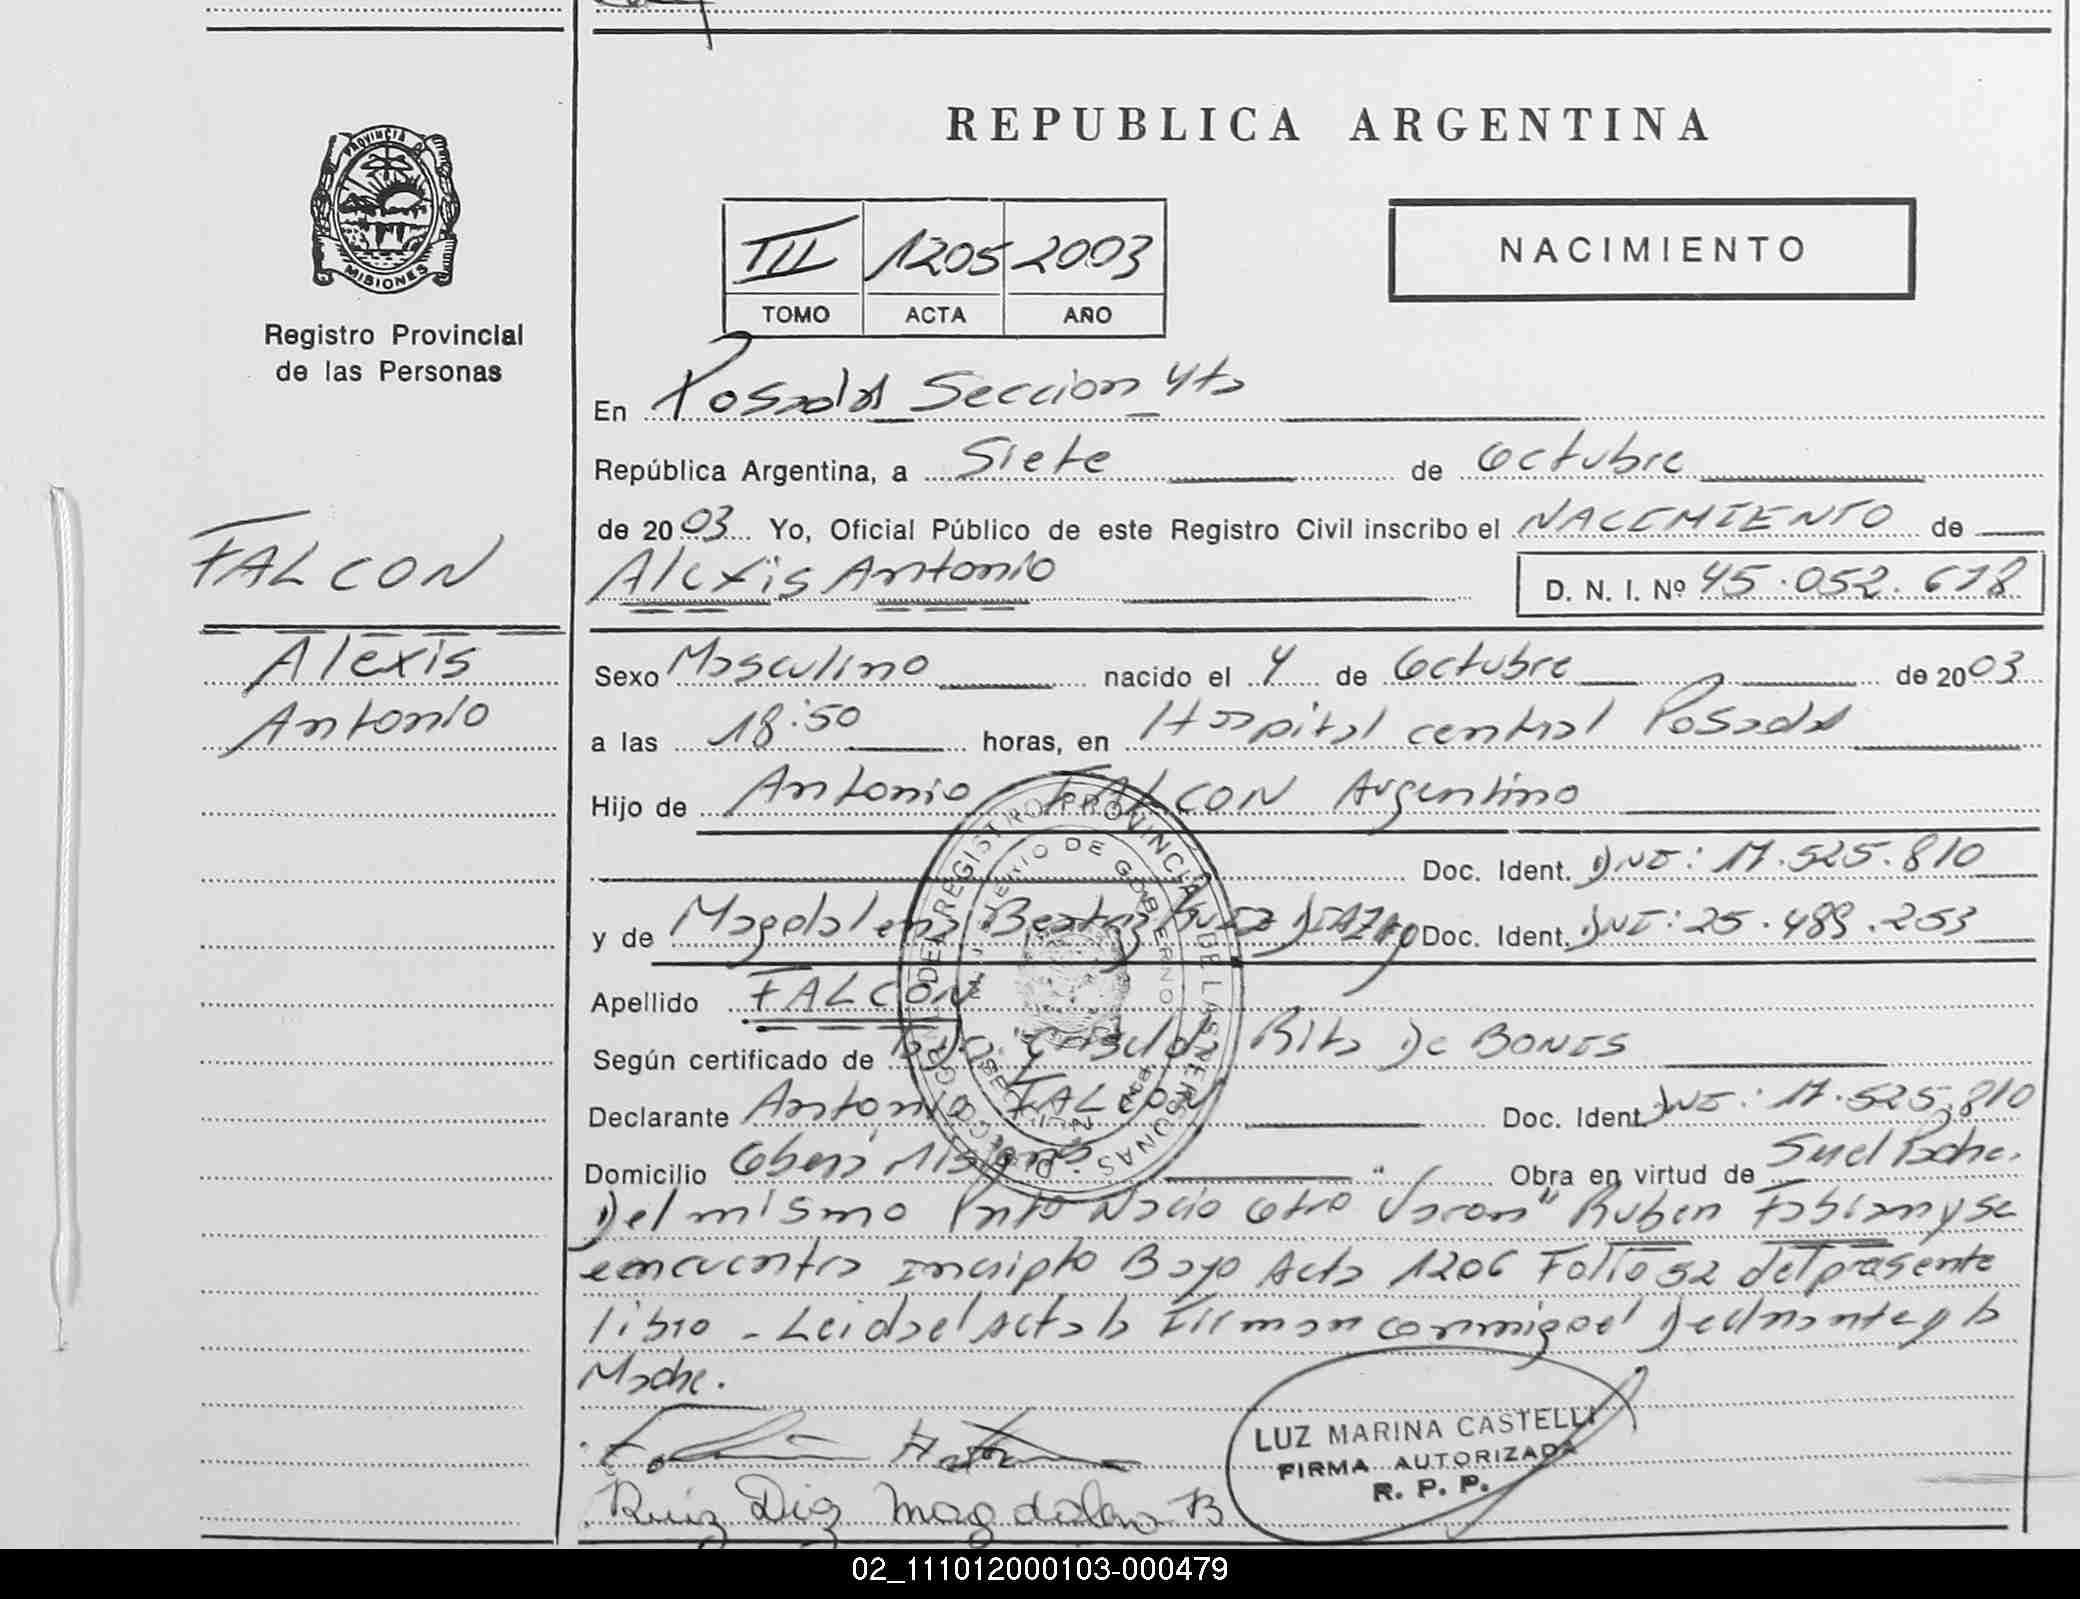 PROVINCIA D
MISIONES
Registro Provincial
de las Personas
FALCON
Alexis
Antonio
REPUBLICA ARGENTINA
III 1205 2003
TOMO ACTA AÑO
NACIMIENTO
En Posadas Seccion 4ta
República Argentina, a Siete de Octubre
de 2003 Yo, Oficial Público de este Registro Civil inscribo el NACIMIENTO de
Alexis Antonio D. N. I. Nº 45.052.678
Sexo Masculino nacido el 4 de Octubre de 2003
a las 18:50 horas, en Hospital central Posadas
Hijo de Antonio FALCON Argentino
Doc. Ident. DNI: 17.525.810
y de Magdalena Beatriz RUIZ DIAZ Doc. Ident. DNI: 25.489.253
Apellido FALCON
Según certificado de Griselda Rita De BONIS
Declarante Antonio FALCON Doc. Ident. DNI: 17.525.810
Domicilio Oberá Misiones " Obra en virtud de Su el Padre.
Del mismo Parto Nacio Otro Varon" Ruben Fabian y se
encuentra Inscripto Bajo Acta 1206 Folio 52 del presente
libro - Leida el Acta la Firman conmigo el Declarante y la
Madre.
Ruiz Diaz Magdalena B
LUZ MARINA CASTELLI
FIRMA AUTORIZADA
R. P. P.
02_111012000103-000479